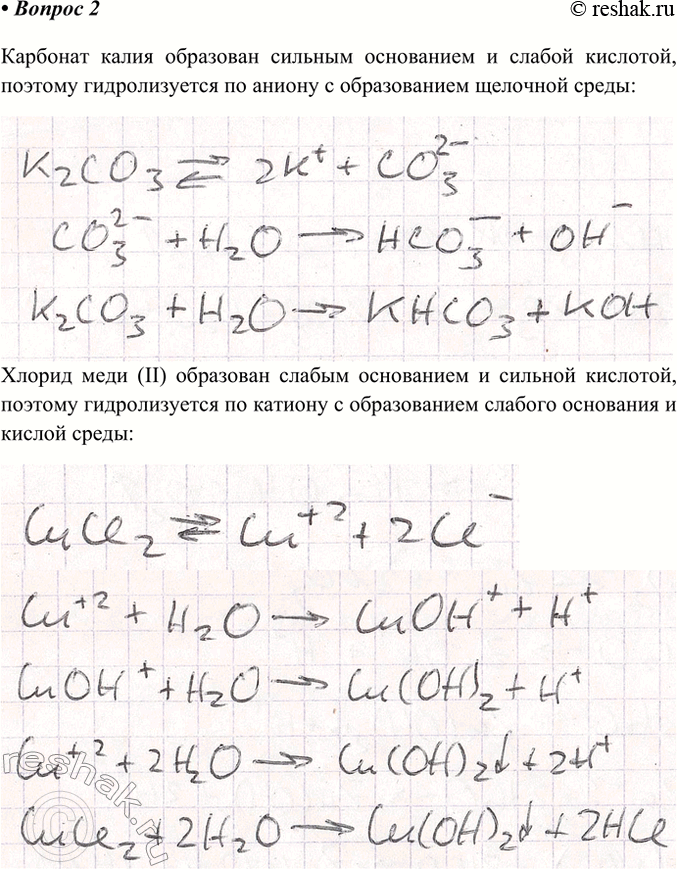 • Вопрос 2
© reshak.ru
Карбонат калия образован сильным основанием и слабой кислотой,
поэтому гидролизуется по аниону с образованием щелочной среды:
K₂CO₃ ⇌ 2K⁺ + CO₃²⁻
CO₃²⁻ + H₂O → HCO₃⁻ + OH⁻
K₂CO₃ + H₂O → KHCO₃ + KOH
Хлорид меди (II) образован слабым основанием и сильной кислотой,
поэтому гидролизуется по катиону с образованием слабого основания и
кислой среды:
CuCl₂ ⇌ Cu⁺² + 2Cl⁻
Cu⁺² + H₂O → CuOH⁺ + H⁺
CuOH⁺ + H₂O → Cu(OH)₂ + H⁺
Cu⁺² + 2H₂O → Cu(OH)₂↓ + 2H⁺
CuCl₂ + 2H₂O → Cu(OH)₂↓ + 2HCl
reshak.ru